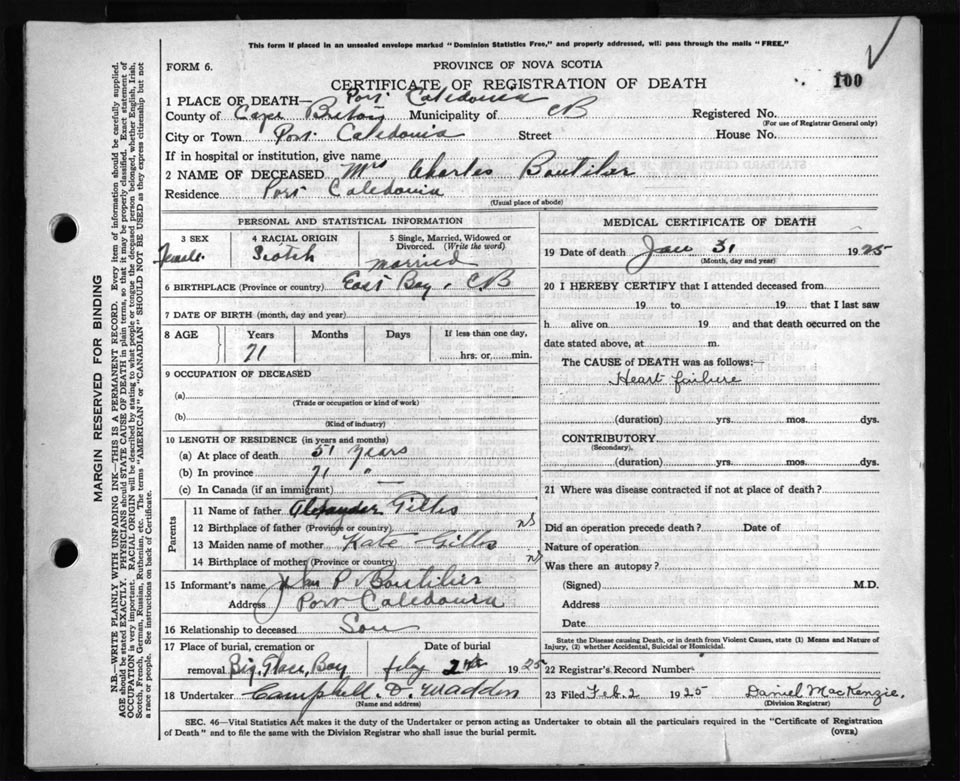 This form if placed in an unsealed envelope marked "Dominion Statistics Free," and properly addressed, will pass through the mails "FREE."
FORM 6.
PROVINCE OF NOVA SCOTIA
CERTIFICATE OF REGISTRATION OF DEATH
100
1 PLACE OF DEATH— Port Caledonia
County of Cape Breton Municipality of CB Registered No.
(For use of Registrar General only)
City or Town Port Caledonia Street House No.
If in hospital or institution, give name
2 NAME OF DECEASED Mrs Charles Boutilier
Residence Port Caledonia
(Usual place of abode)
PERSONAL AND STATISTICAL INFORMATION
3 SEX 4 RACIAL ORIGIN 5 Single, Married, Widowed or Divorced. (Write the word)
Female Scotch married
6 BIRTHPLACE (Province or country) East Bay, CB
7 DATE OF BIRTH (month, day and year)
8 AGE Years Months Days If less than one day,
71 hrs. or min.
9 OCCUPATION OF DECEASED
(a)
(Trade or occupation or kind of work)
(b)
(Kind of industry)
10 LENGTH OF RESIDENCE (in years and months)
(a) At place of death 51 years
(b) In province 71 "
(c) In Canada (if an immigrant) —
Parents
11 Name of father Alexander Gillis
12 Birthplace of father (Province or country) NS
13 Maiden name of mother Kate Gillis
14 Birthplace of mother (Province or country) NS
15 Informant's name John P. Boutilier
Address Port Caledonia
16 Relationship to deceased Son
17 Place of burial, cremation or Date of burial
removal Big Glace Bay feby 2nd 1925
18 Undertaker Campbell D. Madden
(Name and address)
MEDICAL CERTIFICATE OF DEATH
19 Date of death Jan 31 1925
(Month, day and year)
20 I HEREBY CERTIFY that I attended deceased from
19 to 19 that I last saw
h alive on 19 and that death occurred on the
date stated above, at m.
The CAUSE of DEATH was as follows:—
Heart failure
(duration) yrs. mos. dys.
CONTRIBUTORY
(Secondary).
(duration) yrs. mos. dys.
21 Where was disease contracted if not at place of death?
Did an operation precede death? Date of
Nature of operation
Was there an autopsy?
(Signed) M.D.
Address
Date
State the Disease causing Death, or in death from Violent Causes, state (1) Means and Nature of
Injury, (2) whether Accidental, Suicidal or Homicidal.
22 Registrar's Record Number
23 Filed Feb. 2 1925 Daniel MacKenzie,
(Division Registrar)
SEC. 46—Vital Statistics Act makes it the duty of the Undertaker or person acting as Undertaker to obtain all the particulars required in the "Certificate of Registration
of Death" and to file the same with the Division Registrar who shall issue the burial permit.
(OVER)
MARGIN RESERVED FOR BINDING
N.B.—WRITE PLAINLY WITH UNFADING INK—THIS IS A PERMANENT RECORD. Every item of information should be carefully supplied.
AGE should be stated EXACTLY. PHYSICIANS should STATE CAUSE OF DEATH in plain terms, so that it may be properly classified. Exact statement of
OCCUPATION is very important. RACIAL ORIGIN will be described by stating to what people or tongue the deceased person belonged, whether English, Irish,
Scotch, French, German, Russian, Ruthenian, etc. The terms "AMERICAN" or "CANADIAN" SHOULD NOT BE USED as they express citizenship but not
a race or people. See instructions on back of Certificate.